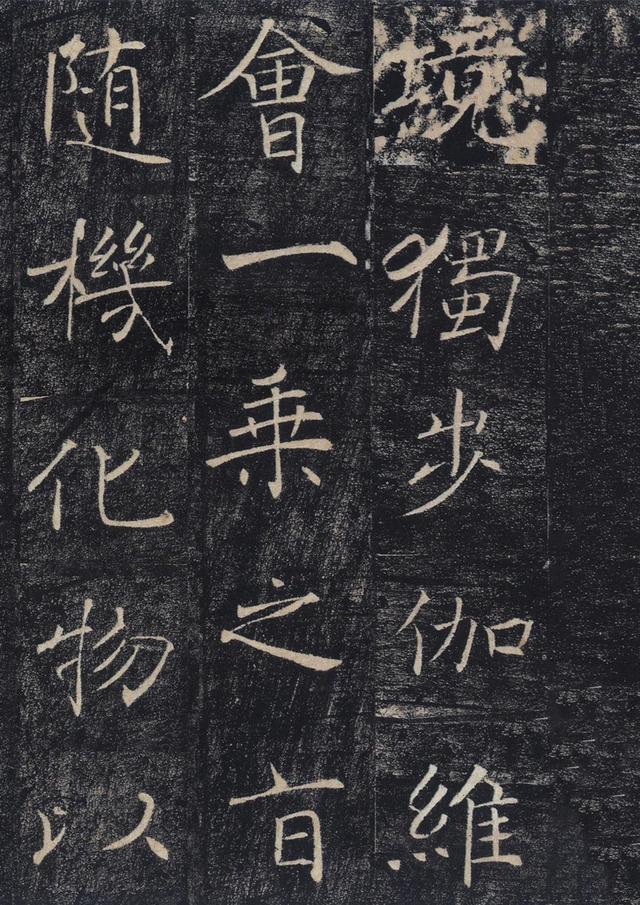 境獨步伽維
會一乘之㫖
随機化物以